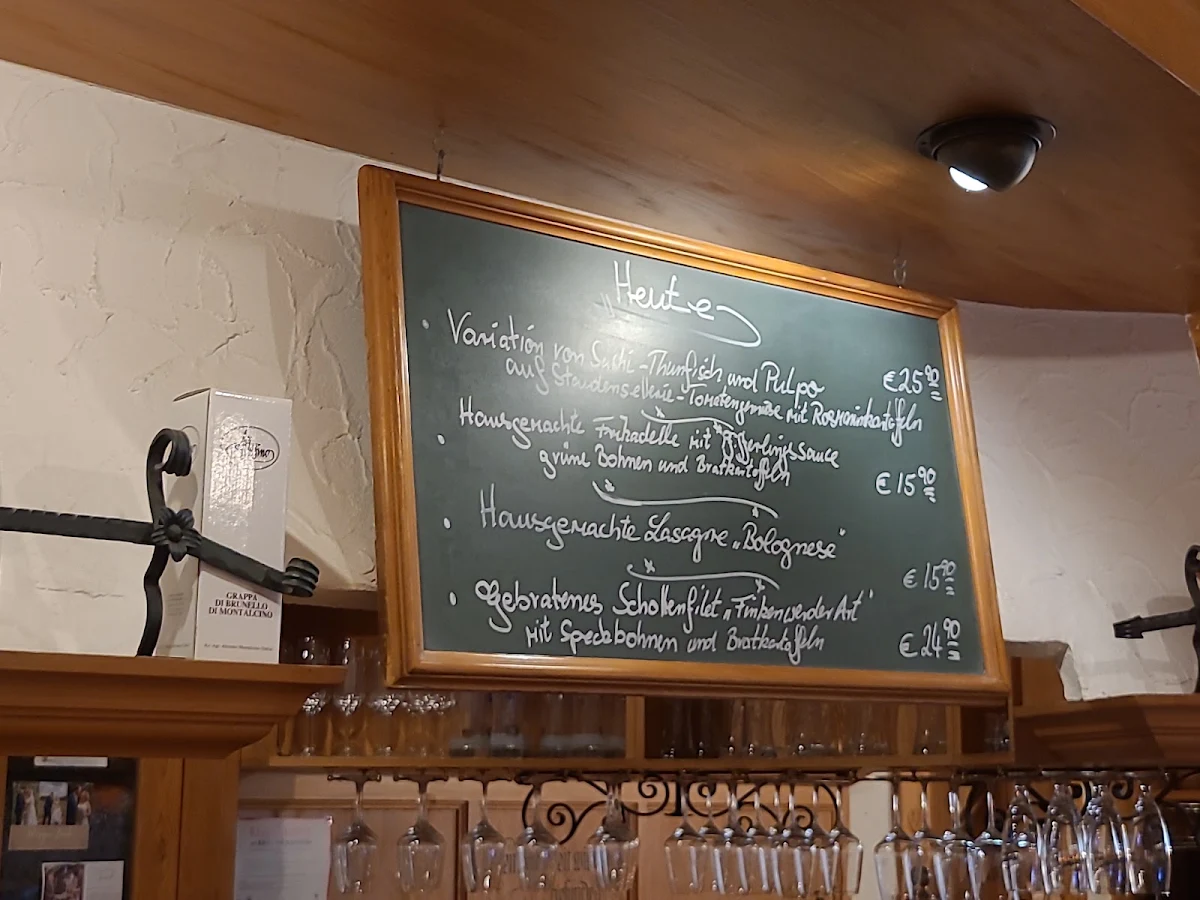 "Heute"
• Variation von Sushi-Thunfisch und Pulpo €25⁹⁰
auf Staudensellerie-Tomatengemüse mit Rosmarinkartoffeln
• Hausgemachte Frikadelle mit Pfifferlingssauce
grüne Bohnen und Bratkartoffeln €15⁹⁰
• Hausgemachte Lasagne „Bolognese"
€15⁹⁰
• Gebratenes Schollenfilet „Finkenwerder Art"
mit Speckbohnen und Bratkartoffeln €24⁹⁰
GRAPPA
DI BRUNELLO
DI MONTALCINO